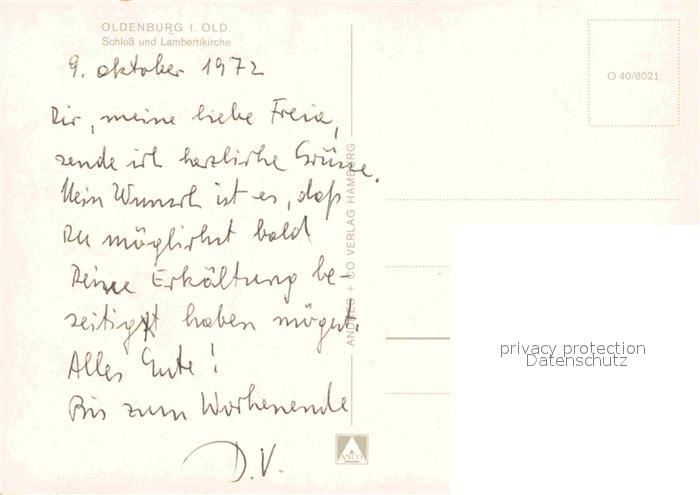 OLDENBURG I. OLD.
Schloß und Lambertikirche
9. Oktober 1972
Dir, meine liebe Freia,
sende ich herzliche Grüsse.
Mein Wunsch ist es, daß
Du möglichst bald
Deine Erkältung be-
seitigt haben mögest.
Alles Gute!
Bis zum Wochenende
D.V.
ANDRES + CO VERLAG HAMBURG
O 40/8021
ANCO
privacy protection
Datenschutz